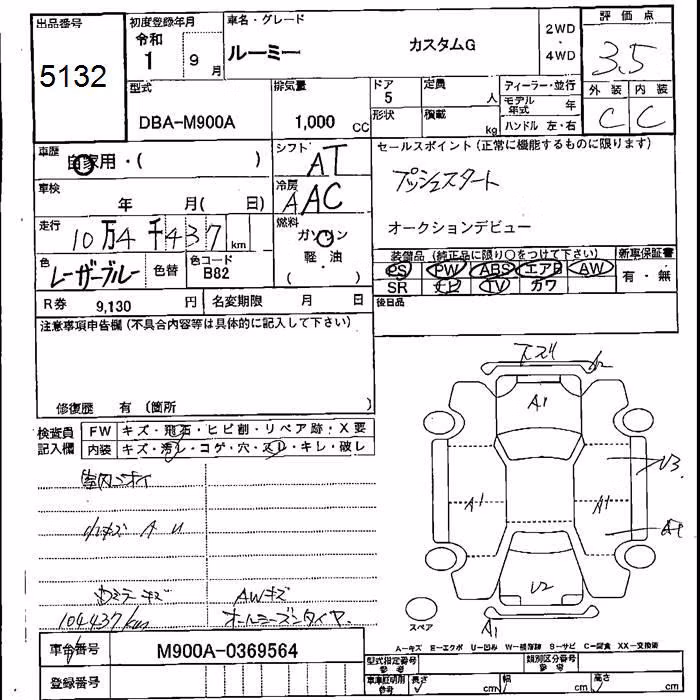 出品番号
5132
初度登録年月
令和
1 9月
車名・グレード
ルーミー カスタムG
2WD
4WD
評価点
3.5
外装 内装
C C
型式
DBA-M900A
排気量
1,000 CC
ドア
5
形状
定員
人
積載
kg
ディーラー・並行
モデル年式 年
ハンドル 左・右
車歴
自家用・( )
シフト
AT
セールスポイント(正常に機能するものに限ります)
プッシュスタート
オークションデビュー
車検
年 月( 日)
冷房
AAC
走行
10万4千437km
燃料
ガソリン
軽・油
( )
色
レーザーブルー
色替
色コード
B82
装備品(純正品に限り○をつけて下さい)
PS PW ABS エアB AW
SR ナビ TV カワ
新車保証書
有・無
R券 9,130 円
名変期限 月 日
後日品
注意事項申告欄(不具合内容等は具体的に記入して下さい)
修復歴 有(箇所 )
検査員
記入欄
FW キズ・飛石・ヒビ割・リペア跡・X要
内装 キズ・汚レ・コゲ・穴・スレ・キレ・破レ
室内ニオイ
小キズ A U
内ミラーキズ AWキズ
104437km オールシーズンタイヤ
スズリ
A2
A1
U3
A1 A1
A2
U2
スペア
A1
A-キズ E-エクボ U-凹み W-補修跡 S-サビ C-腐食 XX-交換済
車台番号
M900A-0369564
登録番号
型式指定番号
参考
類別区分番号
参考
車庫証明用
参考
長さ cm
幅 cm
高さ cm